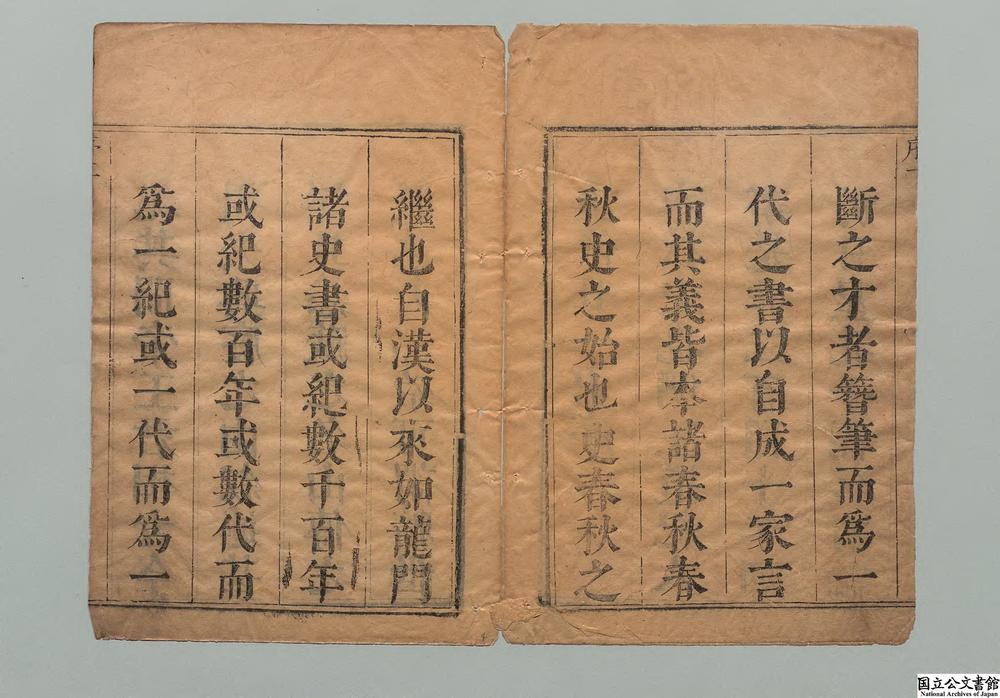 斷之才者簪筆而為一
代之書以自成一家言
而其義皆本諸春秋春
秋史之始也史春秋之
繼也自漢以來如龍門
諸史書或紀數千百年
或紀數百年或數代而
為一紀或一代而為一
国立公文書館
National Archives of Japan